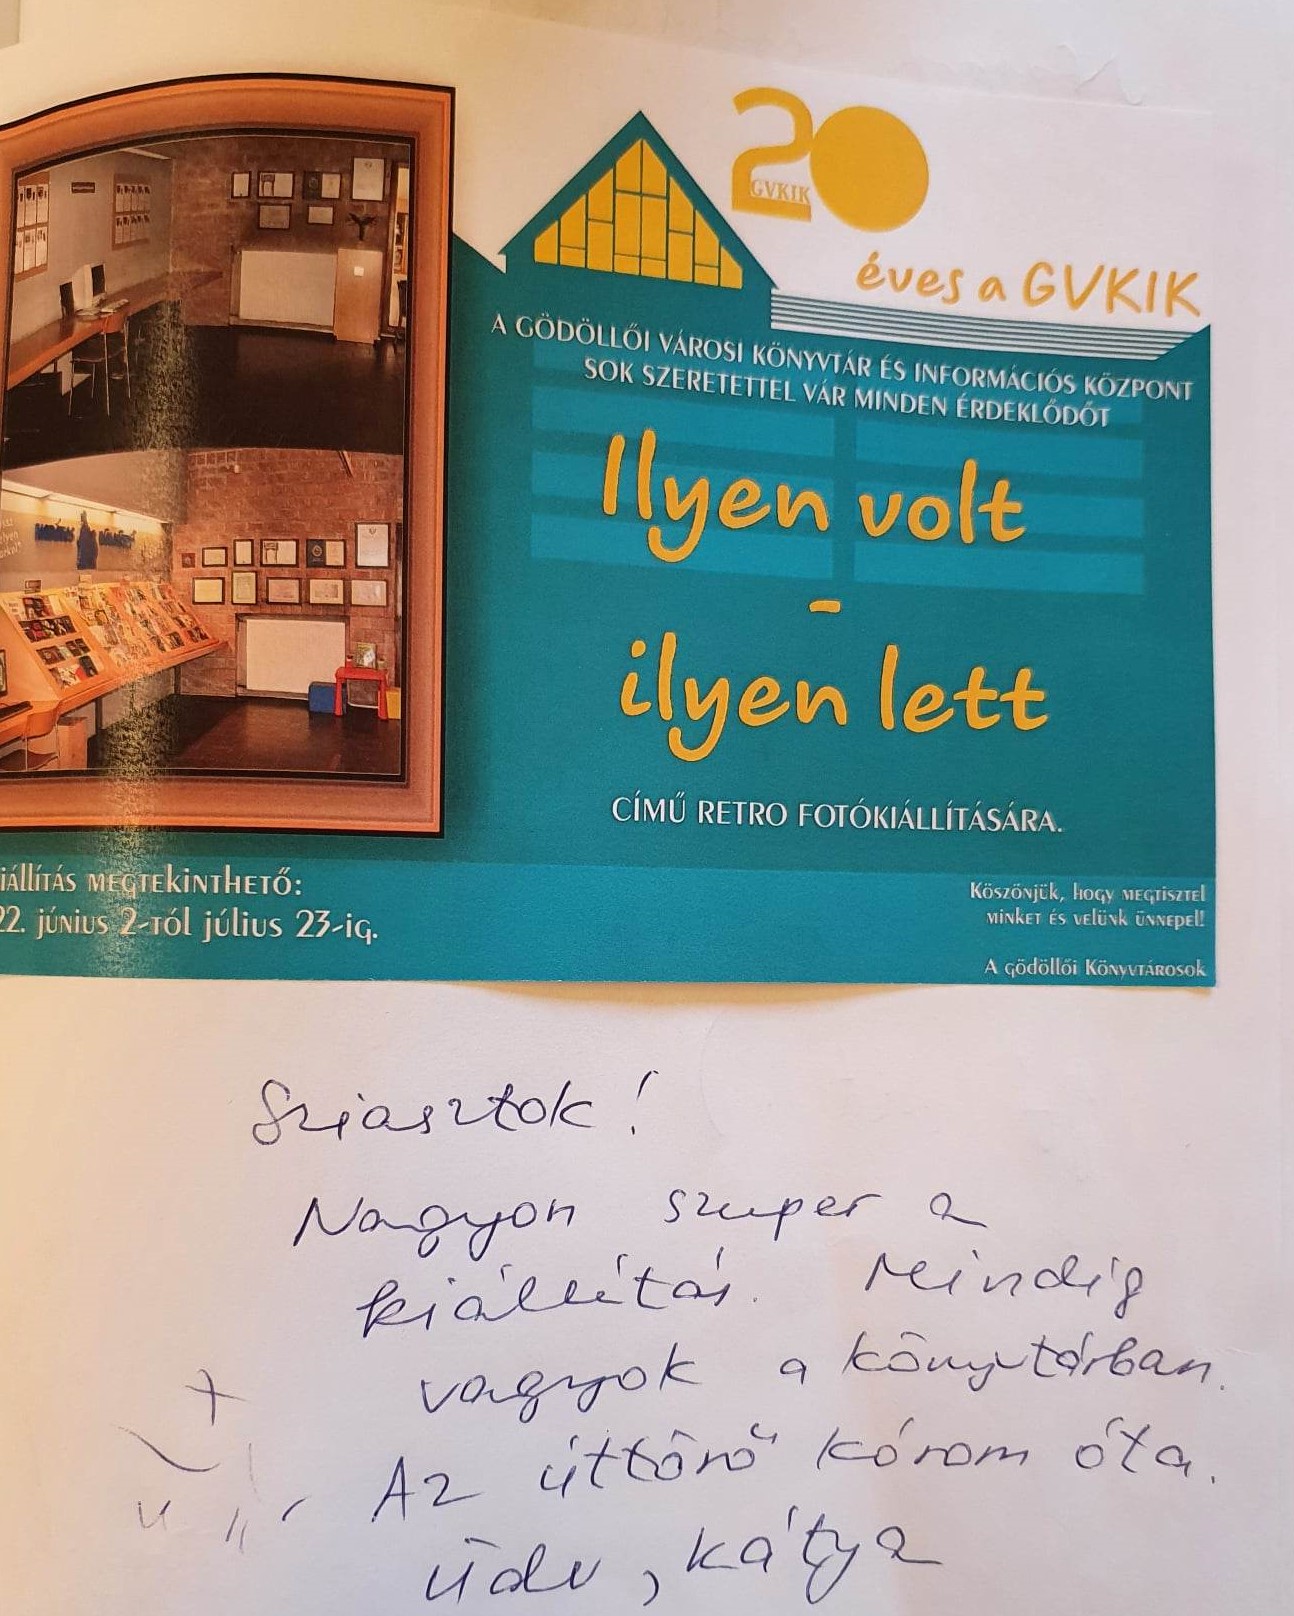 20
GVKIK
éves a GVKIK
A GÖDÖLLŐI VÁROSI KÖNYVTÁR ÉS INFORMÁCIÓS KÖZPONT
SOK SZERETETTEL VÁR MINDEN ÉRDEKLŐDŐT
Ilyen volt
-
ilyen lett
CÍMŰ RETRO FOTÓKIÁLLÍTÁSÁRA.
iállítás megtekinthető:
22. június 2-tól július 23-ig.
Köszönjük, hogy megtisztel
minket és velünk ünnepel!
A gödöllői Könyvtárosok
Sziasztok!
Nagyon szuper a
kiállítás. Mindig
vagyok a könyvtárban.
Az úttörő kórom óta.
Üdv, Kátya